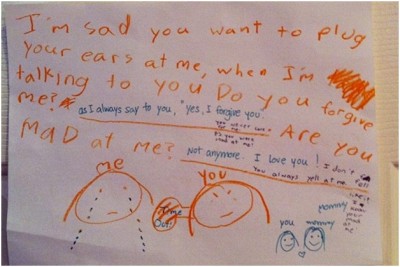 I'm sad you want to plug
your ears at me, when I'm
talking to you Do you forgive
me?
as I always say to you, "yes, I forgive you".
Are you
MaD at me?
Not anymore. I love you! I don't
You always yell at me.
me
you
Time
Out!
mommy
you mommy